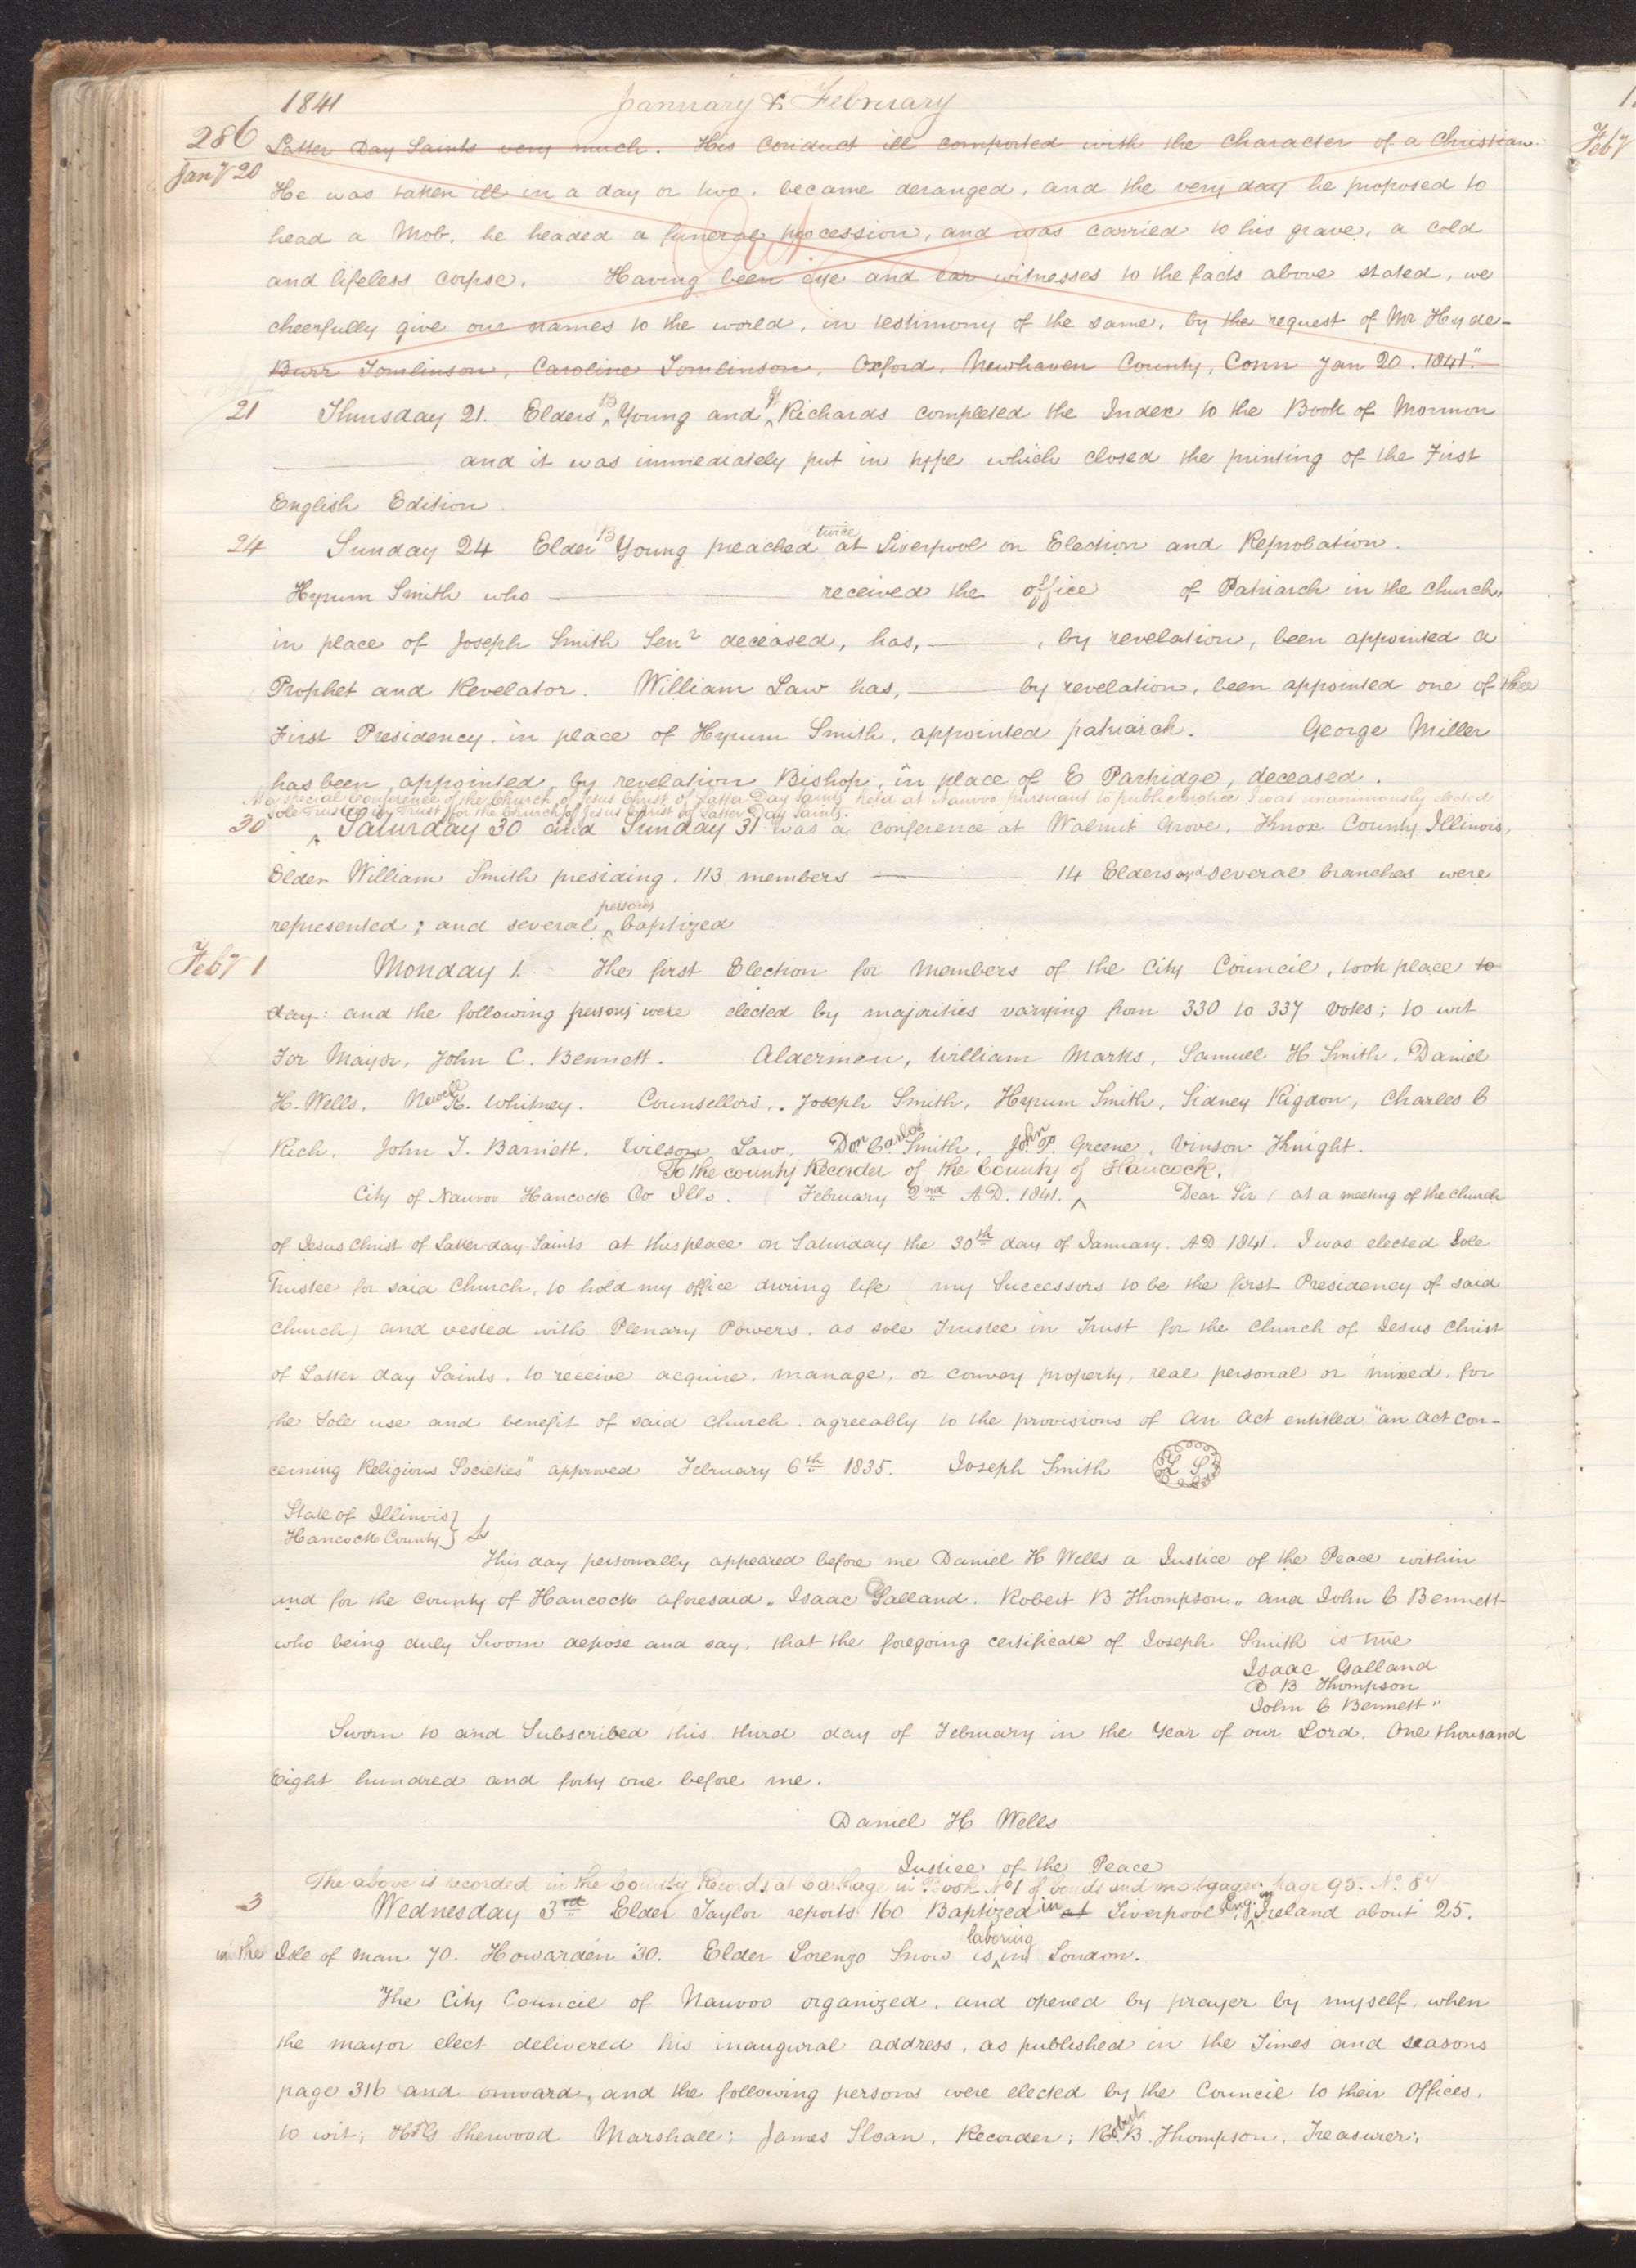 1841 January & February
286
Latter Day Saints very much. His Conduct ill comported with the Character of a Christian.
Jany 20
He was taken ill in a day or two, became deranged, and the very day he proposed to
head a Mob, he headed a funeral procession, and was carried to his grave, a cold
and lifeless corpse. Having been eye and ear witnesses to the facts above stated, we
cheerfully give our names to the world, in testimony of the same, by the request of Mr Hyde—
Burr Tomlinson, Caroline Tomlinson, Oxford, Newhaven County, Conn Jan 20. 1841."
21 Thursday 21. Elders B Young and W Richards completed the Index to the Book of Mormon
and it was immediately put in type which closed the printing of the First
English Edition.
24 Sunday 24 Elder B Young preached twice at Liverpool on Election and Reprobation.
Hyrum Smith who received the office of Patriarch in the church,
in place of Joseph Smith Senr deceased, has, , by revelation, been appointed a
Prophet and Revelator. William Law has, by revelation, been appointed one of the
First Presidency, in place of Hyrum Smith, appointed patriarch. George Miller
has been appointed, by revelation Bishop, in place of E Partridge, deceased.
At a special Conference of the Church of Jesus Christ of Latter Day Saints held at Nauvoo pursuant to public notice I was unanimously elected
Sole Trustee in Trust for the Church of Jesus Christ of Latter Day Saints.
30 Saturday 30 and Sunday 31 was a conference at Walnut Grove, Knox County Illinois,
Elder William Smith presiding. 113 members 14 Elders and several branches were
represented; and several persons baptized
Feby 1 Monday 1. The first Election for members of the City Council, took place to
day: and the following persons were elected by majorities varying from 330 to 337 votes; to wit
For Mayor, John C. Bennett. Aldermen, William Marks, Samuel H Smith, Daniel
H. Wells, Newel K. Whitney. Counsellors, Joseph Smith, Hyrum Smith, Sidney Rigdon, Charles C
Rich, John T. Barnett, Wilson Law, Don Carlos Smith, John P. Greene, Vinson Knight.
To the county Recorder of the County of Hancock.
City of Nauvoo Hancock Co Ills. February 2nd AD. 1841. Dear Sir ( at a meeting of the church
of Jesus Christ of Latter-day Saints at this place on Saturday the 30th day of January. AD 1841. I was elected Sole
Trustee for said Church, to hold my office during life my Successors to be the first Presidency of said
church) and vested with Plenary Powers. as sole Trustee in Trust for the Church of Jesus Christ
of Latter day Saints, to receive acquire, manage, or convey property, real personal or mixed, for
the Sole use and benefit of said Church. agreeably to the provisions of An Act entitled "an act con-
cerning Religious Societies" approved February 6th 1835. Joseph Smith L S
State of Illinois }
Hancock County } Ss
This day personally appeared before me Daniel H Wells a Justice of the Peace within
and for the County of Hancock aforesaid, Isaac Galland. Robert B Thompson, and John C Bennett
who being duly Sworn depose and say, that the foregoing certificate of Joseph Smith is true
Isaac Galland
R B Thompson
John C Bennett "
Sworn to and Subscribed this third day of February in the Year of our Lord. One thousand
Eight hundred and forty one before me.
Daniel H Wells
Justice of the Peace
The above is recorded in the County Records at Carthage in Book No 1 of bonds and mortgages page 95. No. 87
3 Wednesday 3rd Elder Taylor reports 160 Baptized in at Liverpool Eng. in Ireland about 25.
in the Isle of Man 70. Howarden 30. Elder Lorenzo Snow is laboring in London.
The City Council of Nauvoo organized, and opened by prayer by myself, when
the mayor elect delivered his inaugural address, as published in the Times and Seasons
page 316 and onward, and the following persons were elected by the Council to their offices,
to wit; H G Sherwood Marshall; James Sloan, Recorder; Robert B. Thompson, Treasurer;
Feby